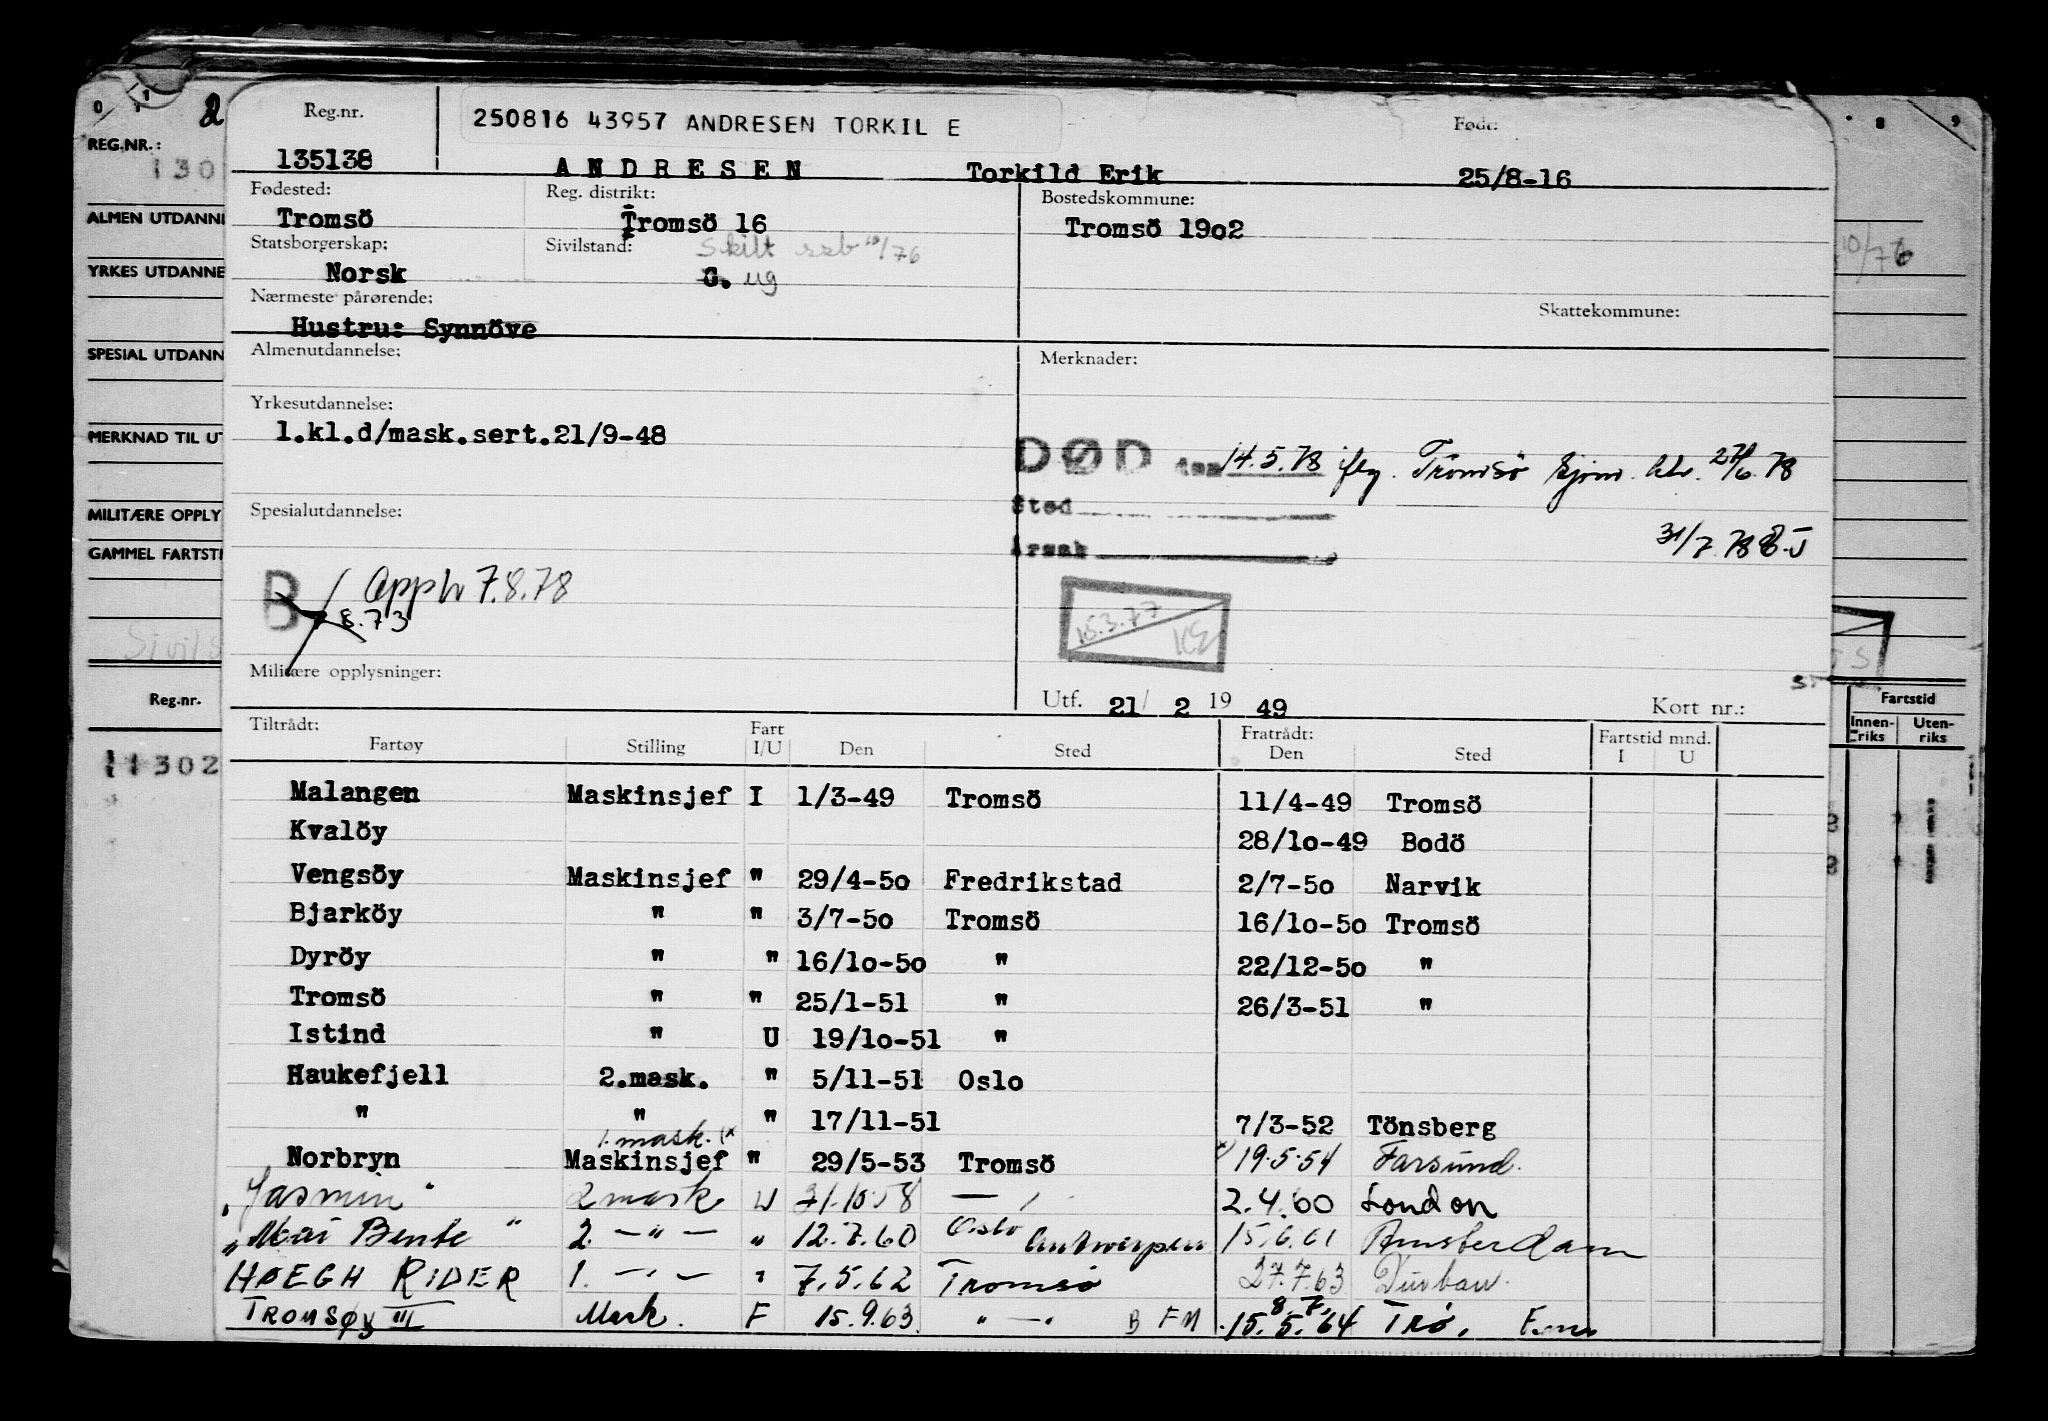 0 1 2 8 9
REG.NR.: Reg.nr. 250816 43957 ANDRESEN TORKIL E Født:
130 135138 ANDRESEN Torkild Erik 25/8-16
Fødested: Reg. distrikt: Bostedskommune:
ALMEN UTDANN Tromsö Tromsö 16 Tromsö 19o2
Statsborgerskap: Sivilstand: Skilt 10/76 10/76
YRKES UTDANNE Norsk G. ug
Nærmeste pårørende: Skattekommune:
Hustru: Synnöve
SPESIAL UTDANN Almenutdannelse: Merknader:
Yrkesutdannelse:
MERKNAD TIL UT 1.kl.d/mask.sert.21/9-48
DØD den 14.5.78 iflg. Tromsö 27/6.78
MILITÆRE OPPLY Spesialutdannelse: Sted
GAMMEL FARTSTI Årsak 31/7.78
B Opph 7.8.78
8.73 15.3.77
Sivils
Militære opplysninger:
Reg.nr. Utf. 21/ 2 19 49 Kort nr.: Fartstid
Innen-riks Uten-riks
Tiltrådt: Fart Fratrådt: Fartstid mnd.
Fartøy Stilling I/U Den Sted Den Sted I U
302
Malangen Maskinsjef I 1/3-49 Tromsö 11/4-49 Tromsö
Kvalöy 28/1o-49 Bodö
Vengsöy Maskinsjef " 29/4-5o Fredrikstad 2/7-5o Narvik
Bjarköy " " 3/7-5o Tromsö 16/1o-5o Tromsö
Dyröy " " 16/1o-5o " 22/12-5o "
Tromsö " " 25/1-51 " 26/3-51 "
Istind " U 19/1o-51 "
Haukefjell 2.mask. " 5/11-51 Oslo
" " " 17/11-51 7/3-52 Tönsberg
1. mask. (x
Norbryn Maskinsjef " 29/5-53 Tromsö x) 19.5.54 Farsund.
"Jasmin" 2 mask U 31.10.58 — " 2.4.60 London
"Mai Bente" 2. — " — " 12.7.60 Oslo Antwerpen 15.6.61 Amsterdam
HØEGH RIDER 1. — " — " 7.5.62 Tromsø 27.7.63 Durban.
8.7.
TROMSØY III Mask. F 15.9.63. " — " B FM 15.5.64 Trø.